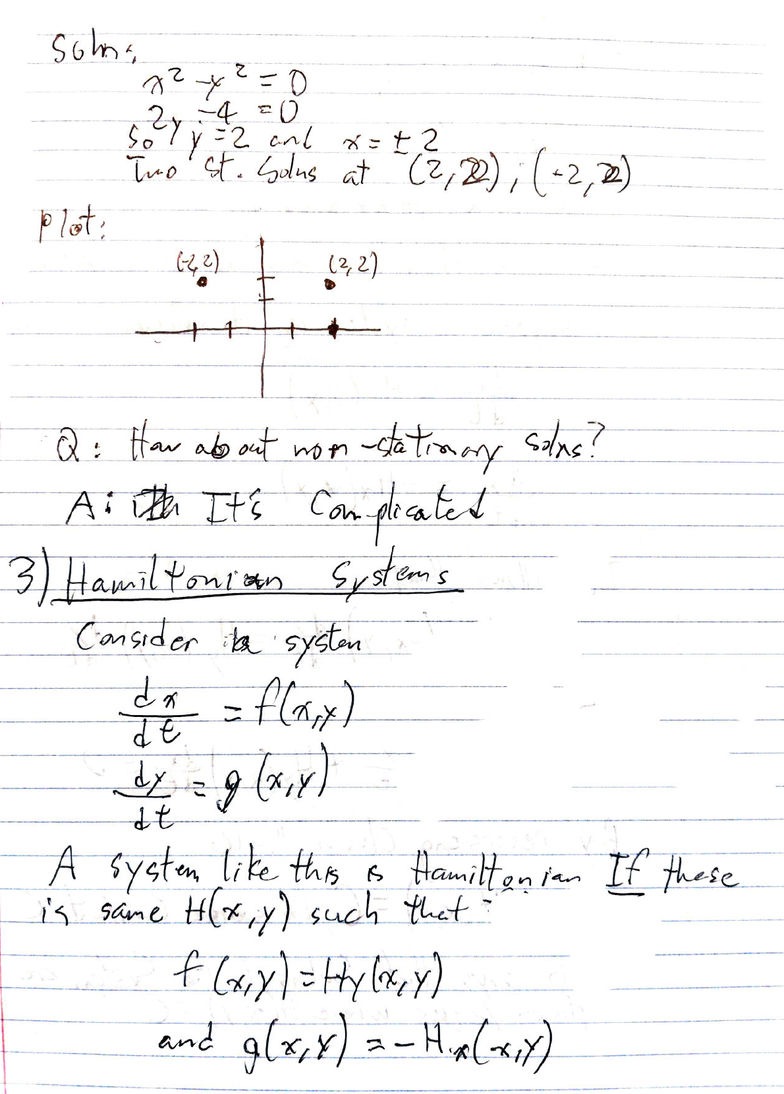 Soln:
x² - y² = 0
2y - 4 = 0
So y = 2 and x = ± 2
Two st. solns at (2, 2), (-2, 2)
Plot:
(-2, 2) (2, 2)
Q: How about non-stationary solns?
A: It's Complicated
3) Hamiltonian Systems
Consider system
dx/dt = f(x,y)
dy/dt = g(x,y)
A system like this is Hamiltonian If these
is same H(x,y) such that:
f(x,y) = Hy(x,y)
and g(x,y) = -Hx(x,y)